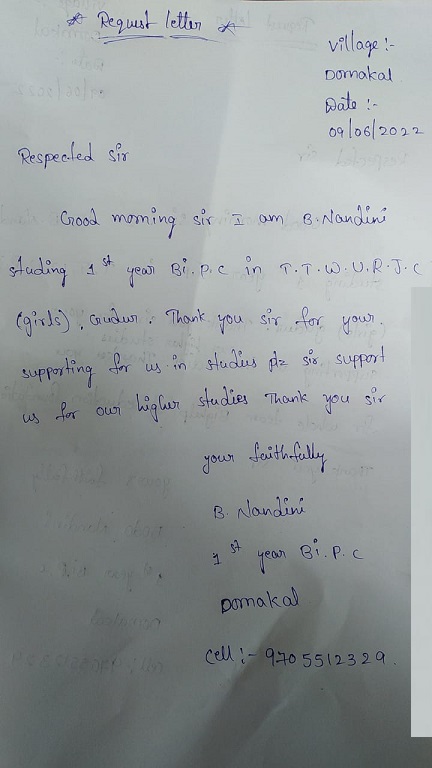 * Request letter *
village :-
Dornakal
Date :-
09/06/2022
Respected sir
Good morning sir I am B. Nandini
studing 1st year Bi.P.C in T.T.W.U.R.J.C
(girls), Gudur. Thank you sir for your
supporting for us in studies plz sir support
us for our higher studies Thank you sir
your faithfully
B. Nandini
1st year Bi.P.C
Dornakal
cell :- 9705512329.